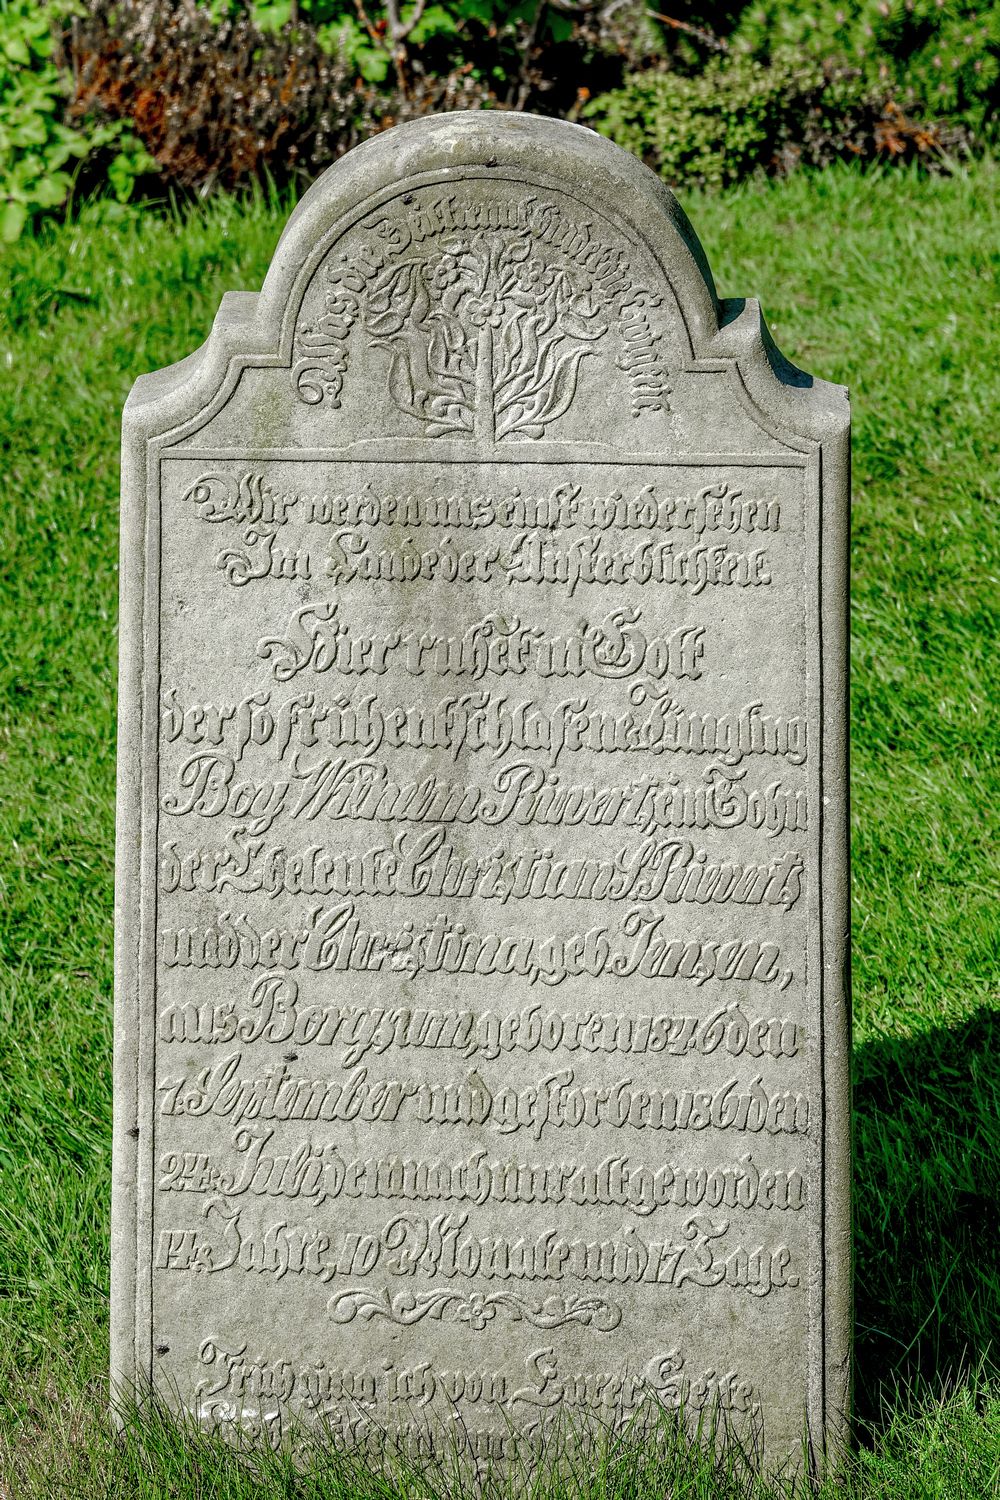 Was die Zeit trennt bindet die Ewigkeit
Wir werden uns einst wiedersehen
Im Lande der Unsterblichkeit.
Hier ruhet in Gott
der so früh entschlafene Jüngling
Boy Wilhelm Rieverts, ein Sohn
der Eheleute Christian S. Rieverts
und der Christina, geb. Jensen,
aus Borgsum, geboren 1846 den
7. September und gestorben 1861 den
24. Juli, demnach nur alt geworden
14 Jahre, 10 Monate und 17 Tage.
Früh ging ich von Eurer Seite,
Eltern, durch